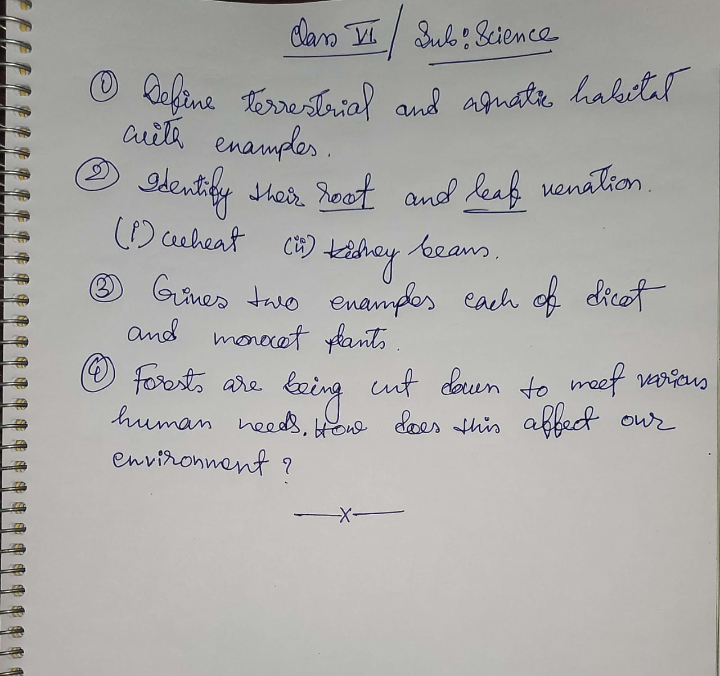 Class VI / Sub: Science
① Define terrestrial and aquatic habitat
with examples.
② Identify their root and leaf venation.
(i) wheat (ii) kidney beans.
③ Gives two examples each of dicot
and monocot plants.
④ Forests are being cut down to meet various
human needs. How does this affect our
environment?
—x—